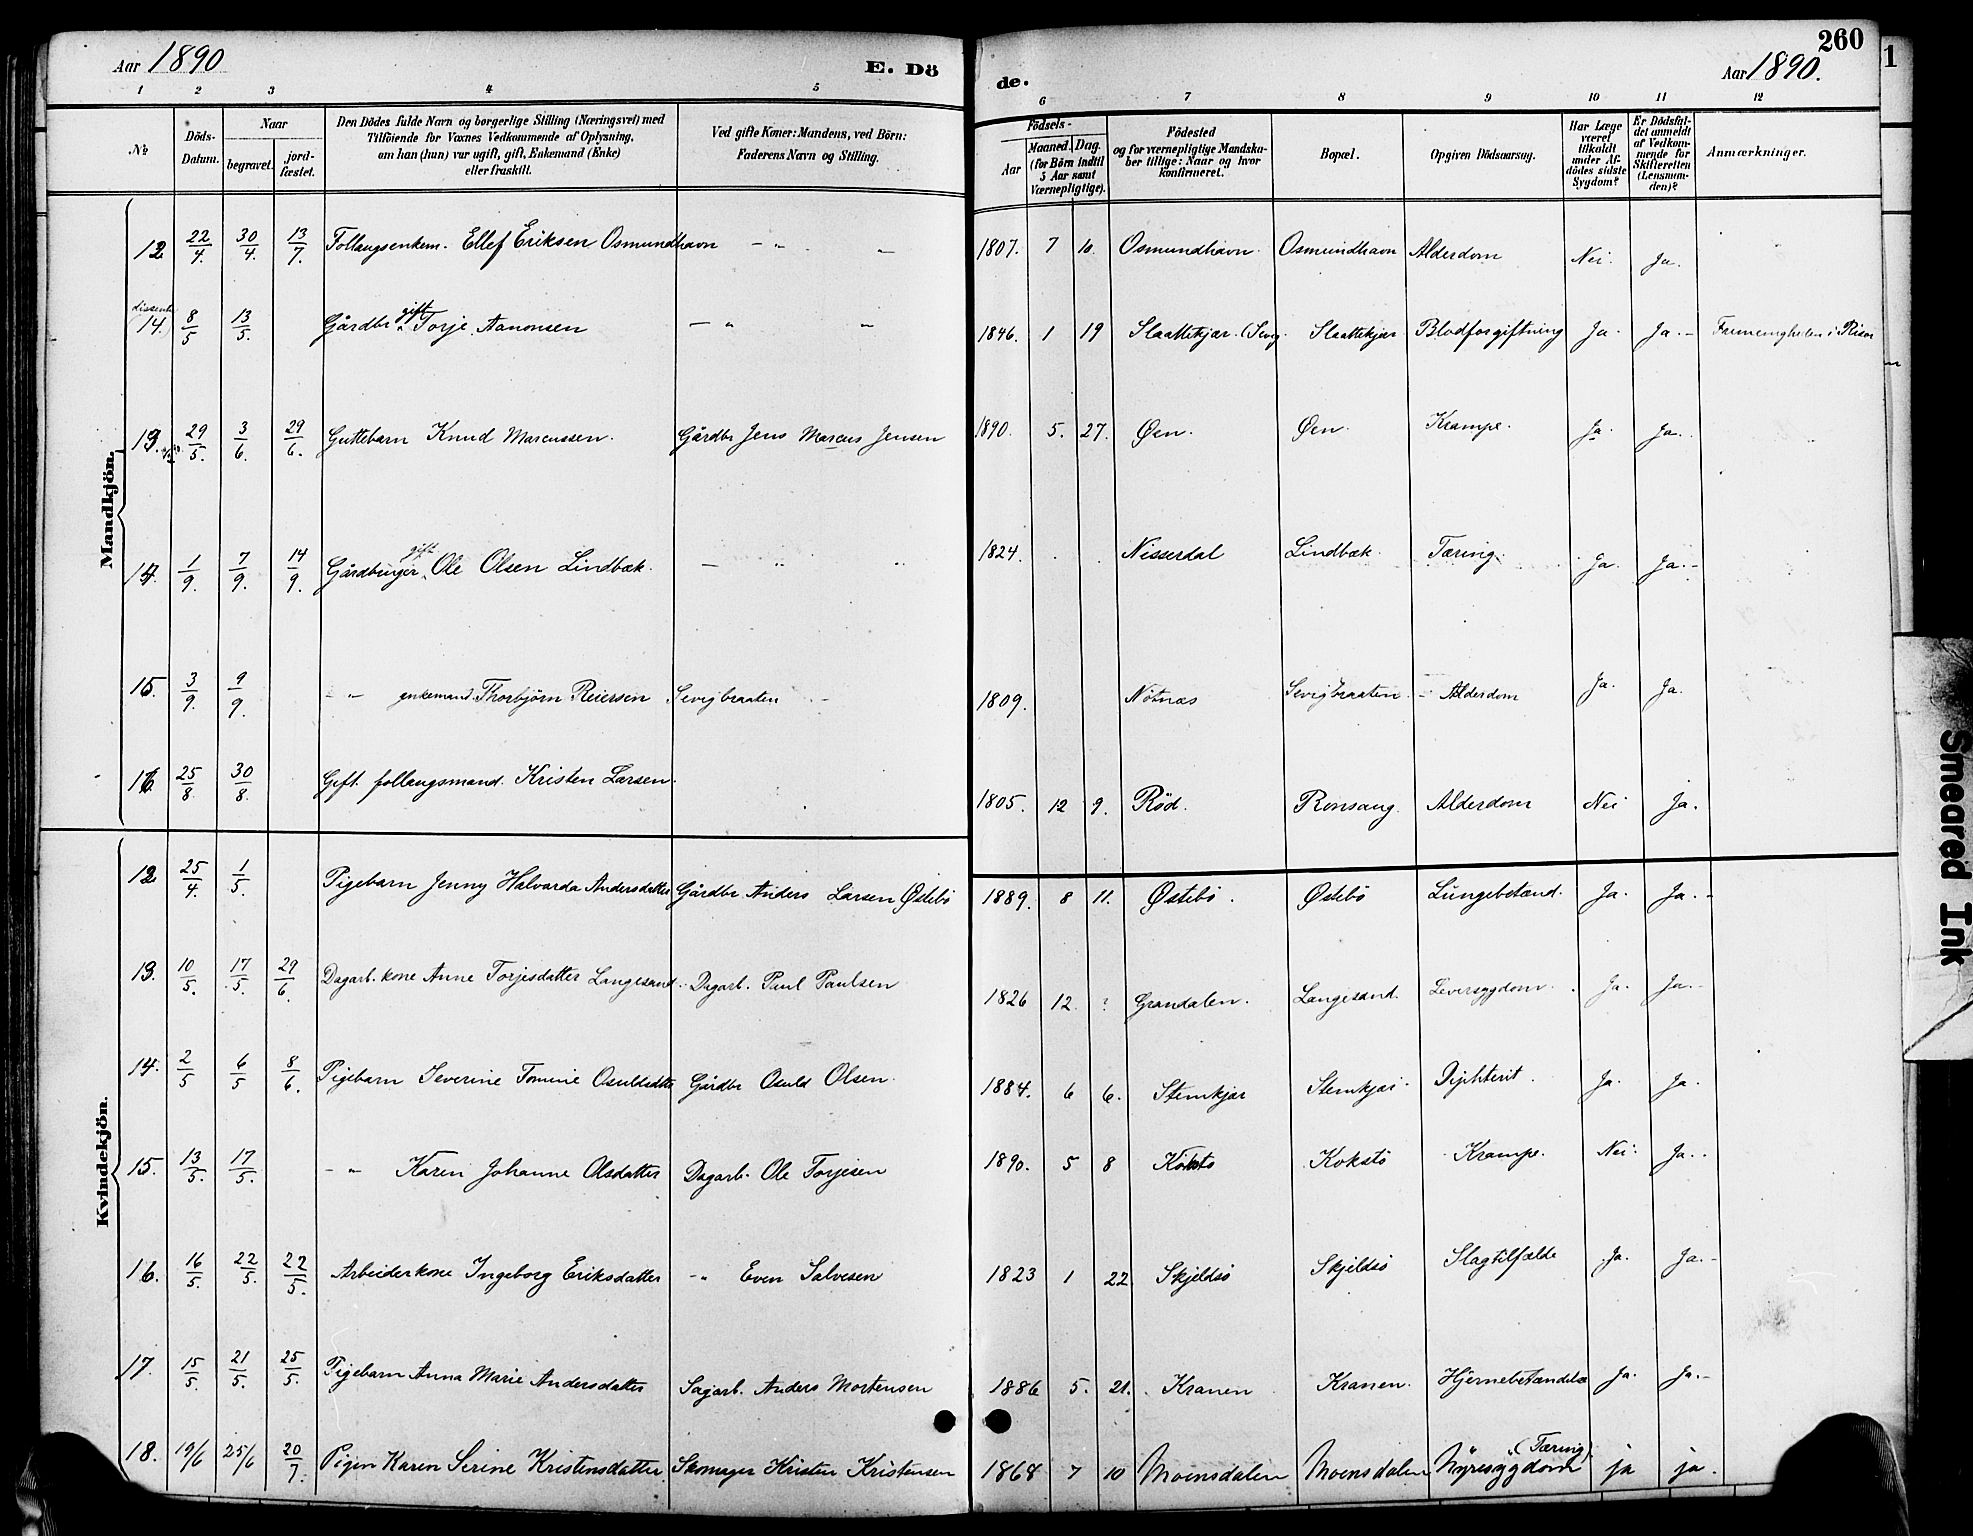 Aar 1890 E. Dö
1 2 3 4 5
№ Döds-Datum. Naar begravet. jord-fæstet. Den Dödes fulde Navn og borgerlige Stilling (Næringsvei) med Tilföiende for Voxnes Vedkommende af Oplysning, om han (hun) var ugift, gift, Enkemand (Enke) eller fraskilt. Ved gifte Koner: Mandens, ved Börn: Faderens Navn og Stilling.
260
de. Aar 1890.
6 7 8 9 10 11 12
Födsels- Aar Maaned. Dag. (for Börn indtil 5 Aar samt Værnepligtige). Födested og for værnepligtige Mandskaber tillige: Naar og hvor konfirmeret. Bopæl. Opgiven Dödsaarsag. Har Læge været tilkaldt under Afdödes sidste Sygdom? Er Dödsfaldet anmeldt af Vedkommende for Skifteretten (Lensmanden)? Anmærkninger.
Mandkjön.
12 22/4. 30/4. 13/7. Follaugsenkem. Ellef Eriksen Osmundhavn – „ – 1807. 7 10. Osmundhavn Osmundhavn Alderdom Nei. Ja.
dissent. 14. 8/5 13/5. Gårdbr gift Torje Aanonsen – „ „ 1846. 1 19 Slaattekjær. (Sevig. Slaattekjær Blodforgiftning Ja. Ja.– i Risør
13. 29/5. 3/6. 29/6. Guttebarn Knud Marcussen. Gårdbr Jens Marcus Jensen 1890. 5. 27. Øen. Øen. Krampe. Ja. Ja.
14. 1/9. 7/9. 14/9. Gårdbruger gift Ole Olsen Lindbæk. – „ „ 1824. Nisserdal Lindbæk. Tæring. Ja. Ja.–
15. 3/9. 9/9. – „ enkemand. Thorbjørn Reiersen Sevigbraaten 1809. Nötnæs Sevigbraaten – Alderdom Ja. Ja.
16. 25/8. 30/8. Gift follaugsmand. Kristen Larsen. 1805. 12 9. Röd. Ronsaug. Alderdom Nei Ja.
Kvindekjön.
12. 25/4 1/5. Pigebarn Jenny Halvarda Andersdatter Gårdbr Anders Larsen Østebö 1889. 8 11. Østebö. Östebö Lungebetænd. Ja. Ja.–
13. 10/5. 17/5. 29/6. Dagarb. kone Anne Torjesdatter Langesand. Dagarb. Paul Paulsen 1826 12. ? Grandalen. Langesand. Leversygdom. Ja. Ja.–
14. 2/5 6/5 8/6. Pigebarn Severine Tomine Osuldsdtr Gårdbr Osuld Olsen. 1884. 6 6. Stemkjær Stemkjær. Diphterit. Ja. Ja.
15. 13/5. 17/5. – „ Karen Johanne Olsdatter Dagarb. Ole Torjesen 1890. 5 8 Kokstö Kokstö Krampe. Nei. Ja..
16. 16/5. 22/5. 22/5. Arbeiderkone Ingeborg Eriksdatter – „ Even Salvesen 1823 1 22 Skjeldsö Skjeldsö Slagtilfælde Ja. Ja.–
17. 15/5. 21/5. 25/5. Pigebarn Anna Marie Andersdatter Sagarb. Anders Mortensen 1886 5. 21. Kranen Kranen. Hjernebetændelse Ja. Ja.–
18. 19/6 25/6 20/7. Pigen Karen Serine Kristensdatter Skomager Kristen Kristensen 1868 7 10 Moensdalen Moensdalen Nyresygdom (Tæring) ja ja.
1
Smeared Ink